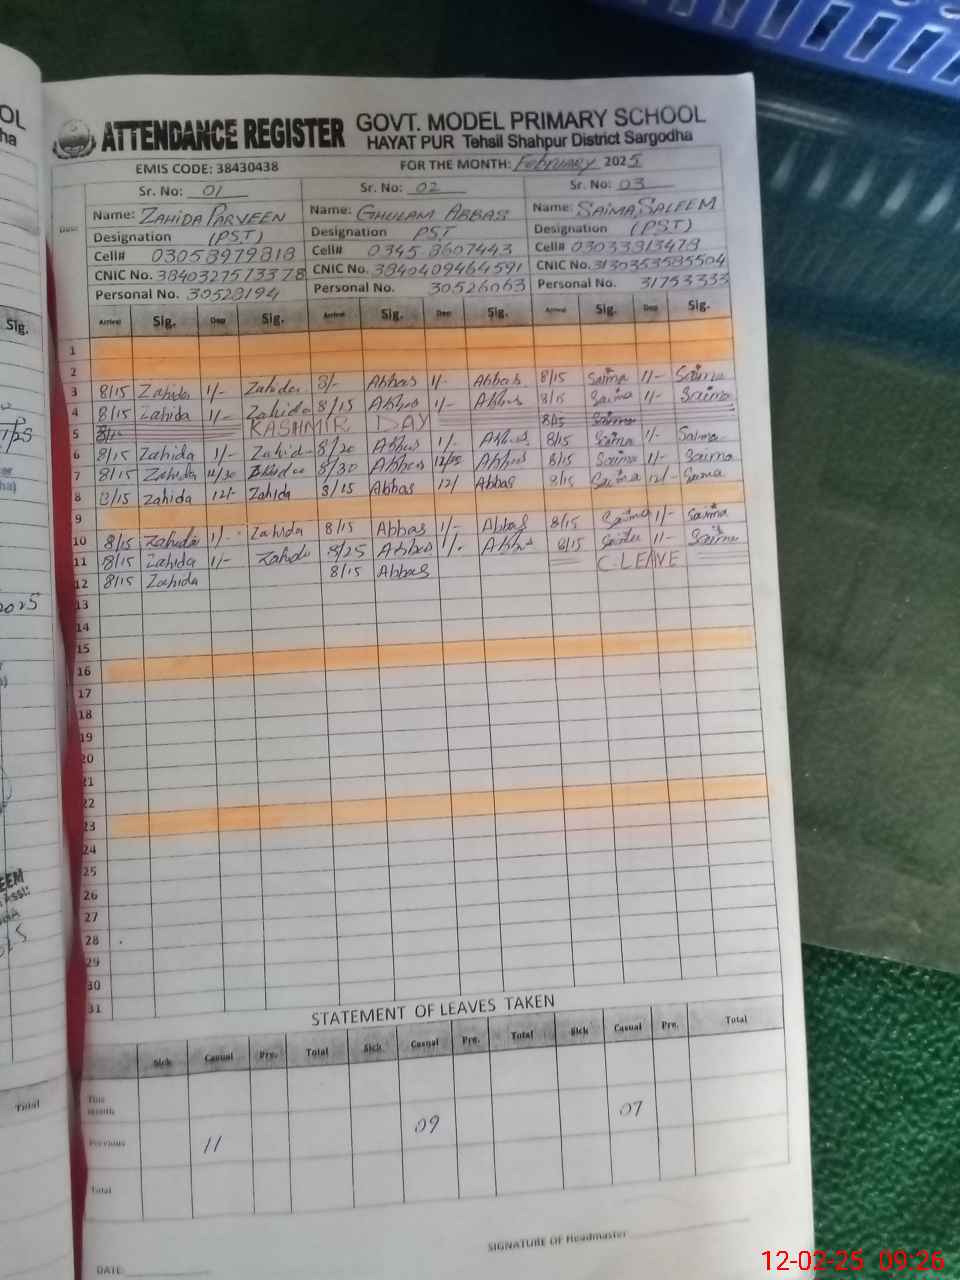 ATTENDANCE REGISTER GOVT. MODEL PRIMARY SCHOOL
HAYAT PUR Tehsil Shahpur District Sargodha
EMIS CODE: 38430438 FOR THE MONTH: February 2025
Sr. No: 01 Sr. No: 02 Sr. No: 03
Name: ZAHIDA PARVEEN Name: GHULAM ABBAS Name: SAIMA SALEEM
Designation (PST) Designation PST Designation (PST)
Cell# 03058979818 Cell# 0345 8607443 Cell# 03033813478
CNIC No. 3840327573378 CNIC No. 3840409464591 CNIC No. 3130353585504
Personal No. 30528194 Personal No. 30526063 Personal No. 31753333
Arrival Sig. Dep Sig. Arrival Sig. Dep Sig. Arrival Sig. Dep Sig.
1
2
3 8/15 Zahida 1/- Zahida 8/- Abbas 1/- Abbas 8/15 Saima 1/- Saima
4 8/15 Zahida 1/- Zahida 8/15 Abbas 1/- Abbas 8/15 Saima 1/- Saima
5 KASHMIR DAY 8/15 Saima
6 8/15 Zahida 1/- Zahida 8/20 Abbas 1/- Abbas 8/15 Saima 1/- Saima
7 8/15 Zahida 8/30 Abbas Abbas 8/15 Saima 1/- Saima
8 8/15 Zahida 12/- Zahida 8/15 Abbas 12/ Abbas 8/15 Saima 12/- Saima
9
10 8/15 Zahida 1/- Zahida 8/15 Abbas 1/- Abbas 8/15 Saima 1/- Saima
11 8/15 Zahida 1/- Zahida 8/25 Abbas 1/- Abbas 8/15 Saima 1/- Saima
12 8/15 Zahida 8/15 Abbas C.LEAVE
13
14
15
16
17
18
19
20
21
22
23
24
25
26
27
28
29
30
31
STATEMENT OF LEAVES TAKEN
Sick Casual Pre. Total Sick Casual Pre. Total Sick Casual Pre. Total
This Month
Previous 11 09 07
Total
SIGNATURE OF Headmaster
DATE:
12-02-25 09:26